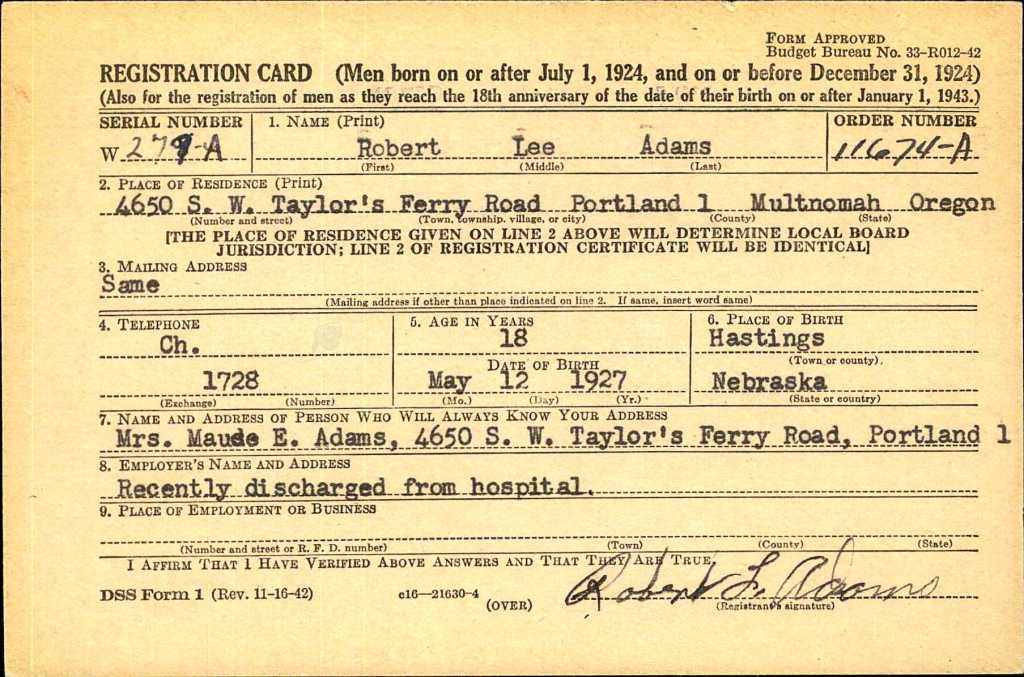 FORM APPROVED
Budget Bureau No. 33-R012-42
REGISTRATION CARD (Men born on or after July 1, 1924, and on or before December 31, 1924)
(Also for the registration of men as they reach the 18th anniversary of the date of their birth on or after January 1, 1943.)
SERIAL NUMBER 1. NAME (Print) ORDER NUMBER
W 279-A Robert Lee Adams 11674-A
(First) (Middle) (Last)
2. PLACE OF RESIDENCE (Print)
4650 S. W. Taylor's Ferry Road Portland 1 Multnomah Oregon
(Number and street) (Town, township, village, or city) (County) (State)
[THE PLACE OF RESIDENCE GIVEN ON LINE 2 ABOVE WILL DETERMINE LOCAL BOARD
JURISDICTION; LINE 2 OF REGISTRATION CERTIFICATE WILL BE IDENTICAL]
3. MAILING ADDRESS
Same
(Mailing address if other than place indicated on line 2. If same, insert word same)
4. TELEPHONE 5. AGE IN YEARS 6. PLACE OF BIRTH
Ch. 18 Hastings
DATE OF BIRTH (Town or county)
1728 May 12 1927 Nebraska
(Exchange) (Number) (Mo.) (Day) (Yr.) (State or country)
7. NAME AND ADDRESS OF PERSON WHO WILL ALWAYS KNOW YOUR ADDRESS
Mrs. Maude E. Adams, 4650 S. W. Taylor's Ferry Road, Portland 1
8. EMPLOYER'S NAME AND ADDRESS
Recently discharged from hospital.
9. PLACE OF EMPLOYMENT OR BUSINESS
(Number and street or R. F. D. number) (Town) (County) (State)
I AFFIRM THAT I HAVE VERIFIED ABOVE ANSWERS AND THAT THEY ARE TRUE.
DSS Form 1 (Rev. 11-16-42) c16—21630-4 (OVER) Robert L. Adams
(Registrant's signature)